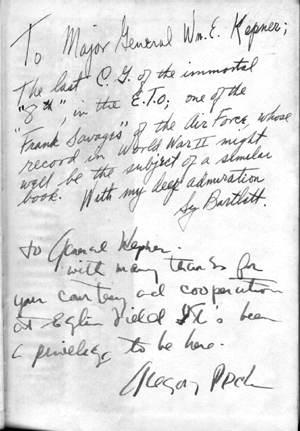 To Major General Wm. E. Kepner;
The last C.G. of the immortal
"8th", in the E.T.O; one of the
"Frank Savages" of the Air Force, whose
record in World War II might
well be the subject of a similar
book. With my deep admiration
Sy Bartlett.
To General Kepner.
with many thanks for
your courtesy and cooperation
at Eglin Field It's been
a privilege to be here.
Gregory Peck